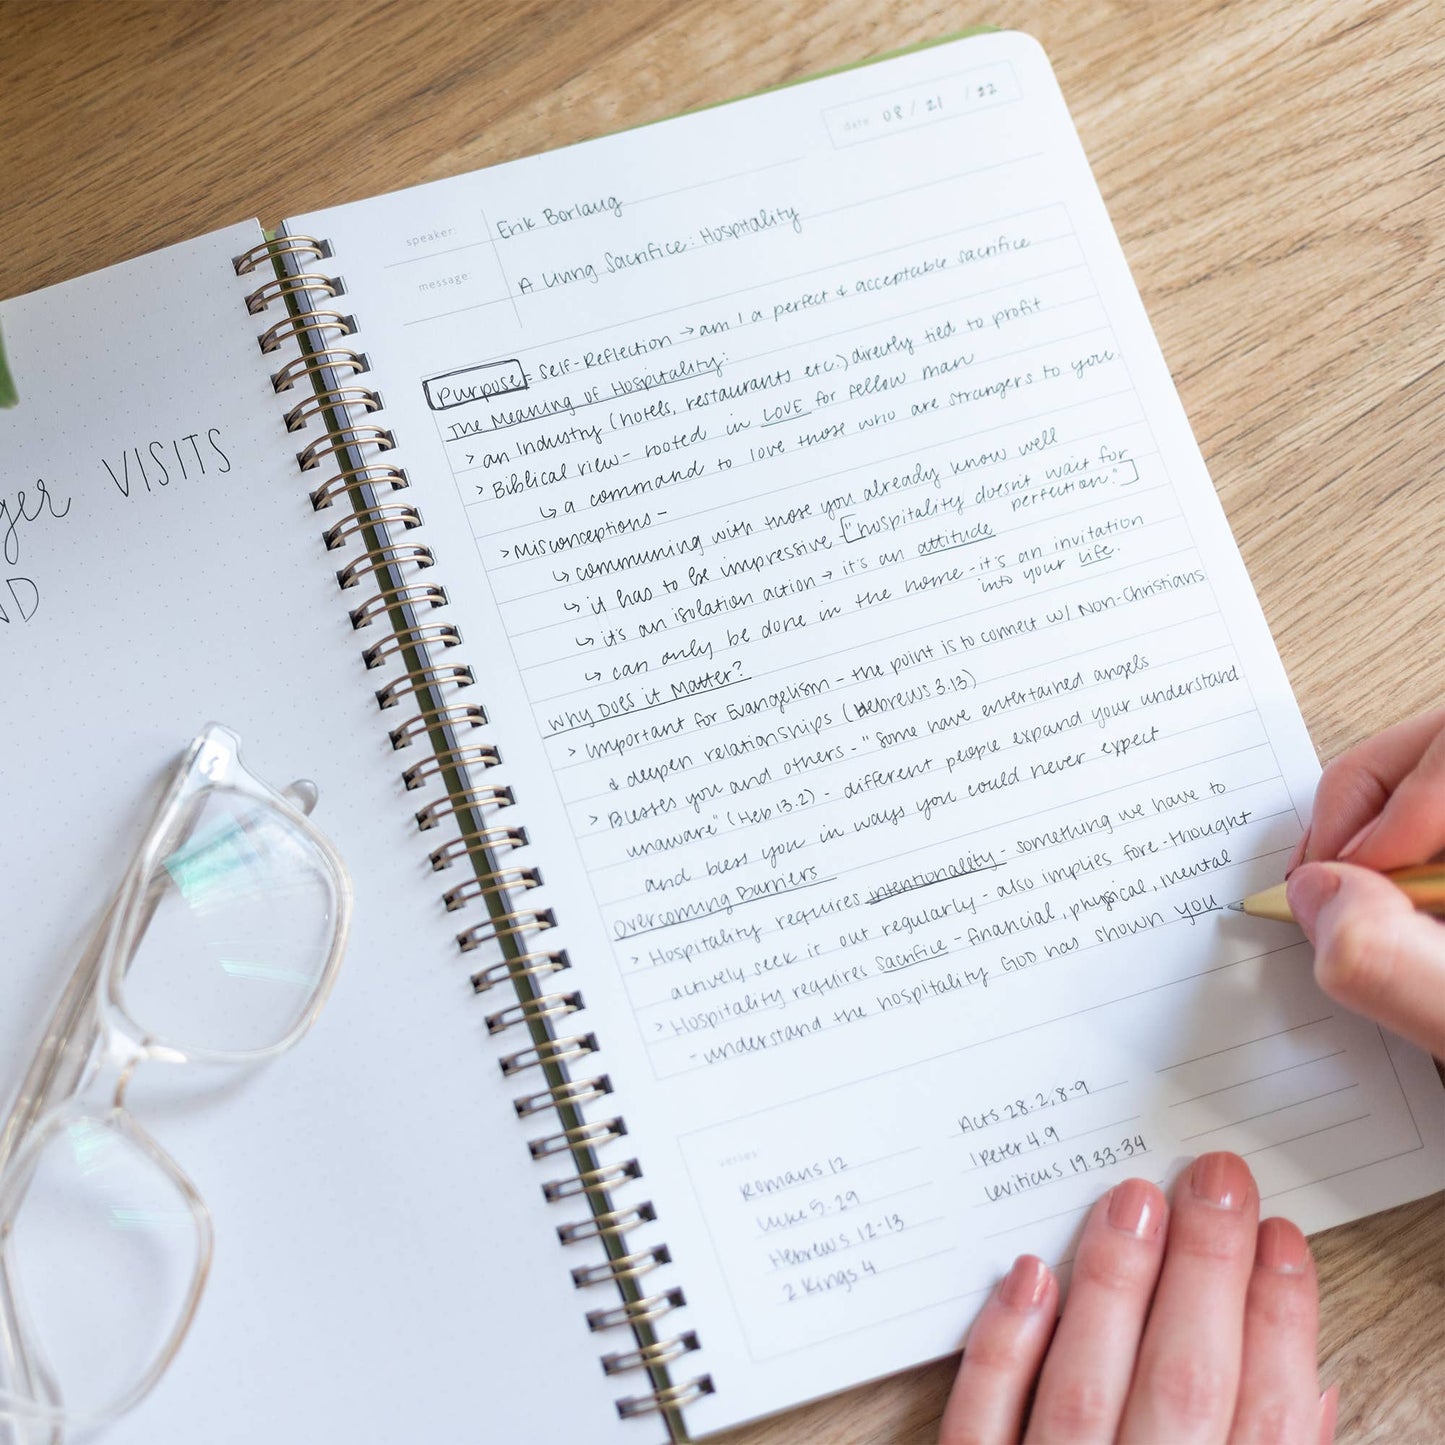 ger VISITS
ND
date: 08 / 21 / 22
speaker: Erik Borlaug
message: A Living Sacrifice: Hospitality
Purpose = Self-Reflection → am I a perfect & acceptable sacrifice
The Meaning of Hospitality:
> an Industry (hotels, restaurants etc.) directly tied to profit
> Biblical view - rooted in LOVE for fellow man
↳ a command to love those who are strangers to you.
> Misconceptions -
↳ communing with those you already know well
↳ it has to be impressive ["hospitality doesn't wait for
perfection."]
↳ it's an isolation action → it's an attitude
↳ can only be done in the home - it's an invitation
into your life.
Why Does it Matter?
> Important for Evangelism - the point is to connect w/ Non-Christians
& deepen relationships (Hebrews 3.13)
> Blesses you and others - "Some have entertained angels
unaware" (Heb 13.2) - different people expand your understand
and bless you in ways you could never expect
Overcoming Barriers
> Hospitality requires intentionality - something we have to
actively seek it out regularly - also implies fore-thought
> Hospitality requires sacrifice - financial, physical, mental
- understand the hospitality GOD has shown you
verses:
Romans 12
Luke 5.29
Hebrews 12-13
2 Kings 4
Acts 28.2,8-9
1 Peter 4.9
Leviticus 19.33-34